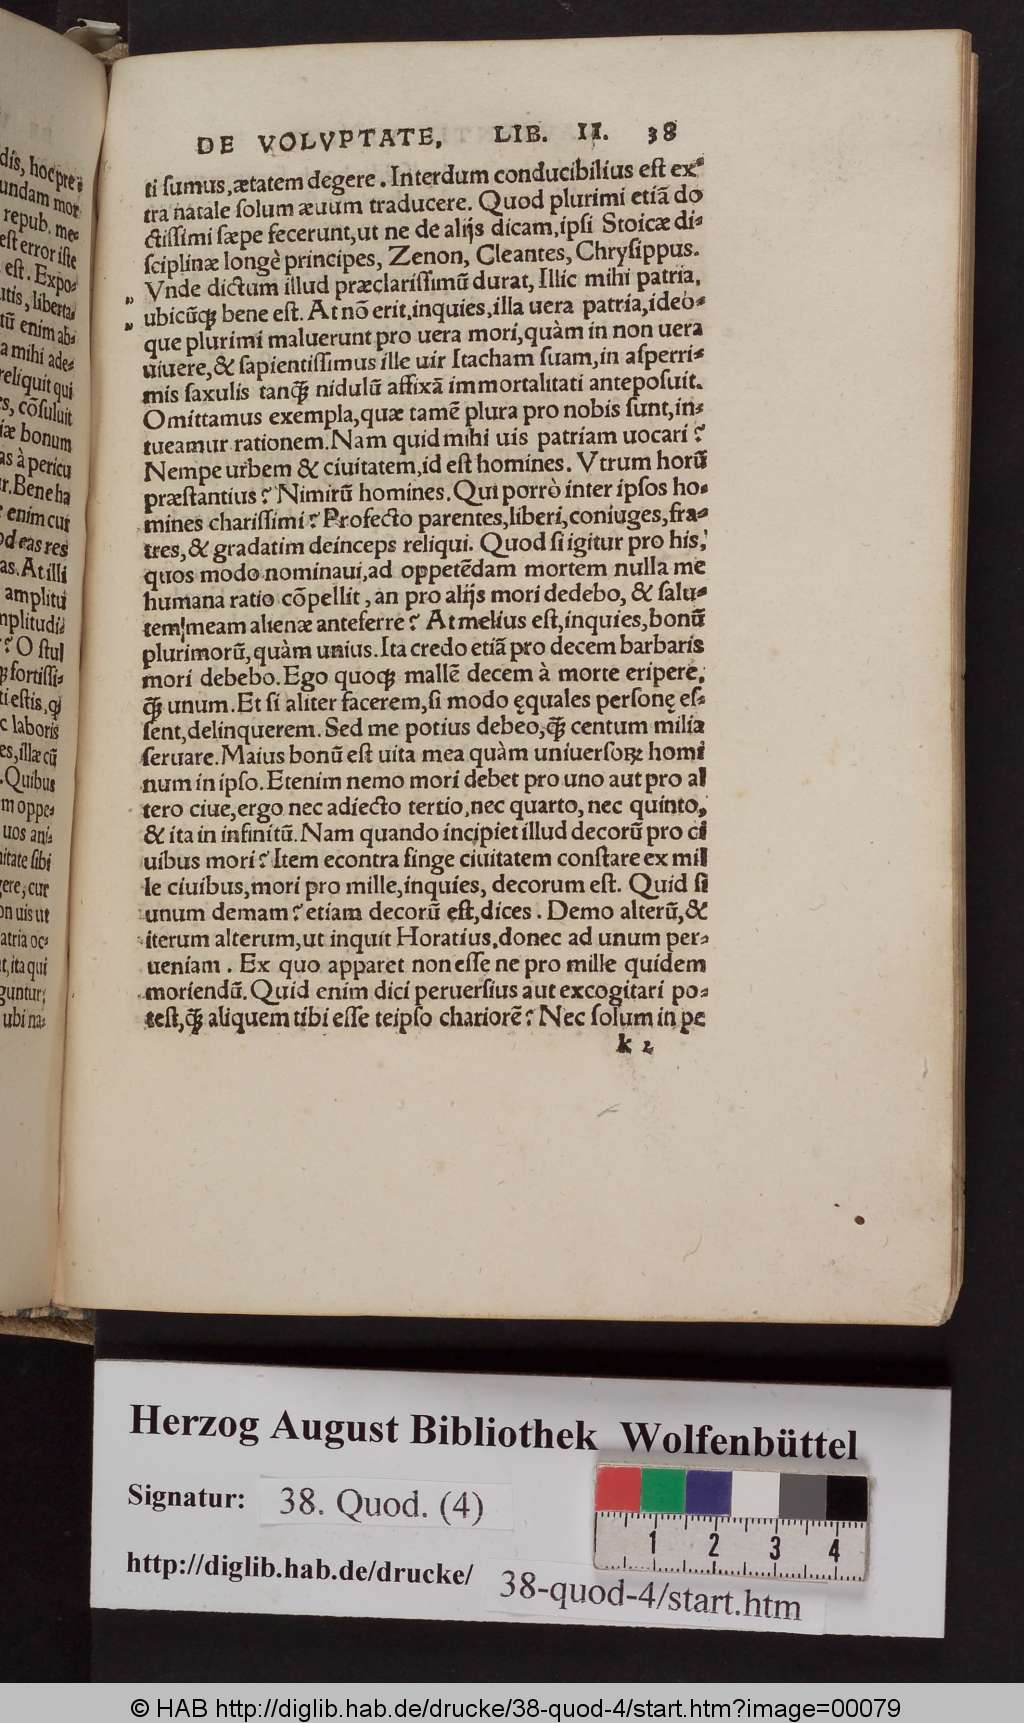 dis, hoc pre
undam mor
repub. me-
est error iste
est. Expo-
utis, liberta-
tũ enim ab-
a mihi ade-
reliquit qui
s, cõsuluit
iæ bonum
as à pericu
r. Bene ha
enim cur
od eas res
as. At illi
amplitu
mplitudi-
? O stul
fortissi-
ti estis, ꝙ
c laboris
es, illæ cũ
. Quibus
m oppe-
uos ani-
nitate sibi
gere, cur
on uis ut
atria oc-
t, ita qui
guntur;
ubi na-
DE VOLVPTATE, LIB. II. 38
ti sumus, ætatem degere. Interdum conducibilius est ex-
tra natale solum æuum traducere. Quod plurimi etiã do
ctissimi sæpe fecerunt, ut ne de alijs dicam, ipsi Stoicæ di-
sciplinæ longè principes, Zenon, Cleantes, Chrysippus.
„ Vnde dictum illud præclarissimũ durat, Illic mihi patria,
„ ubicũꝗ bene est. At nõ erit, inquies, illa uera patria, ideo-
que plurimi maluerunt pro uera mori, quàm in non uera
uiuere, & sapientissimus ille uir Itacham suam, in asperri-
mis saxulis tanꝗ̃ nidulũ affixã immortalitati anteposuit.
Omittamus exempla, quæ tamẽ plura pro nobis sunt, in-
tueamur rationem. Nam quid mihi uis patriam uocari?
Nempe urbem & ciuitatem, id est homines. Vtrum horũ
præstantius? Nimirũ homines. Qui porrò inter ipsos ho-
mines charissimi? Profecto parentes, liberi, coniuges, fra-
tres, & gradatim deinceps reliqui. Quod si igitur pro his,
quos modo nominaui, ad oppetẽdam mortem nulla me
humana ratio cõpellit, an pro alijs mori dedebo, & salu-
tem meam alienæ anteferre? At melius est, inquies, bonũ
plurimorũ, quàm unius. Ita credo etiã pro decem barbaris
mori debebo. Ego quoꝗ mallẽ decem à morte eripere,
ꝗ̃ unum. Et si aliter facerem, si modo ęquales personę es-
sent, delinquerem. Sed me potius debeo, ꝗ̃ centum milia
seruare. Maius bonũ est uita mea quàm uniuersoꝝ homi
num in ipso. Etenim nemo mori debet pro uno aut pro al
tero ciue, ergo nec adiecto tertio, nec quarto, nec quinto,
& ita in infinitũ. Nam quando incipiet illud decorũ pro ci
uibus mori? Item econtra finge ciuitatem constare ex mil
le ciuibus, mori pro mille, inquies, decorum est. Quid si
unum demam? etiam decorũ est, dices. Demo alterũ, &
iterum alterum, ut inquit Horatius, donec ad unum per-
ueniam. Ex quo apparet non esse ne pro mille quidem
moriendũ. Quid enim dici peruersius aut excogitari po-
test, ꝗ̃ aliquem tibi esse teipso chariorẽ? Nec solum in pe
k 2
Herzog August Bibliothek Wolfenbüttel
Signatur: 38. Quod. (4)
http://diglib.hab.de/drucke/ 38-quod-4/start.htm
1 2 3 4
© HAB http://diglib.hab.de/drucke/38-quod-4/start.htm?image=00079